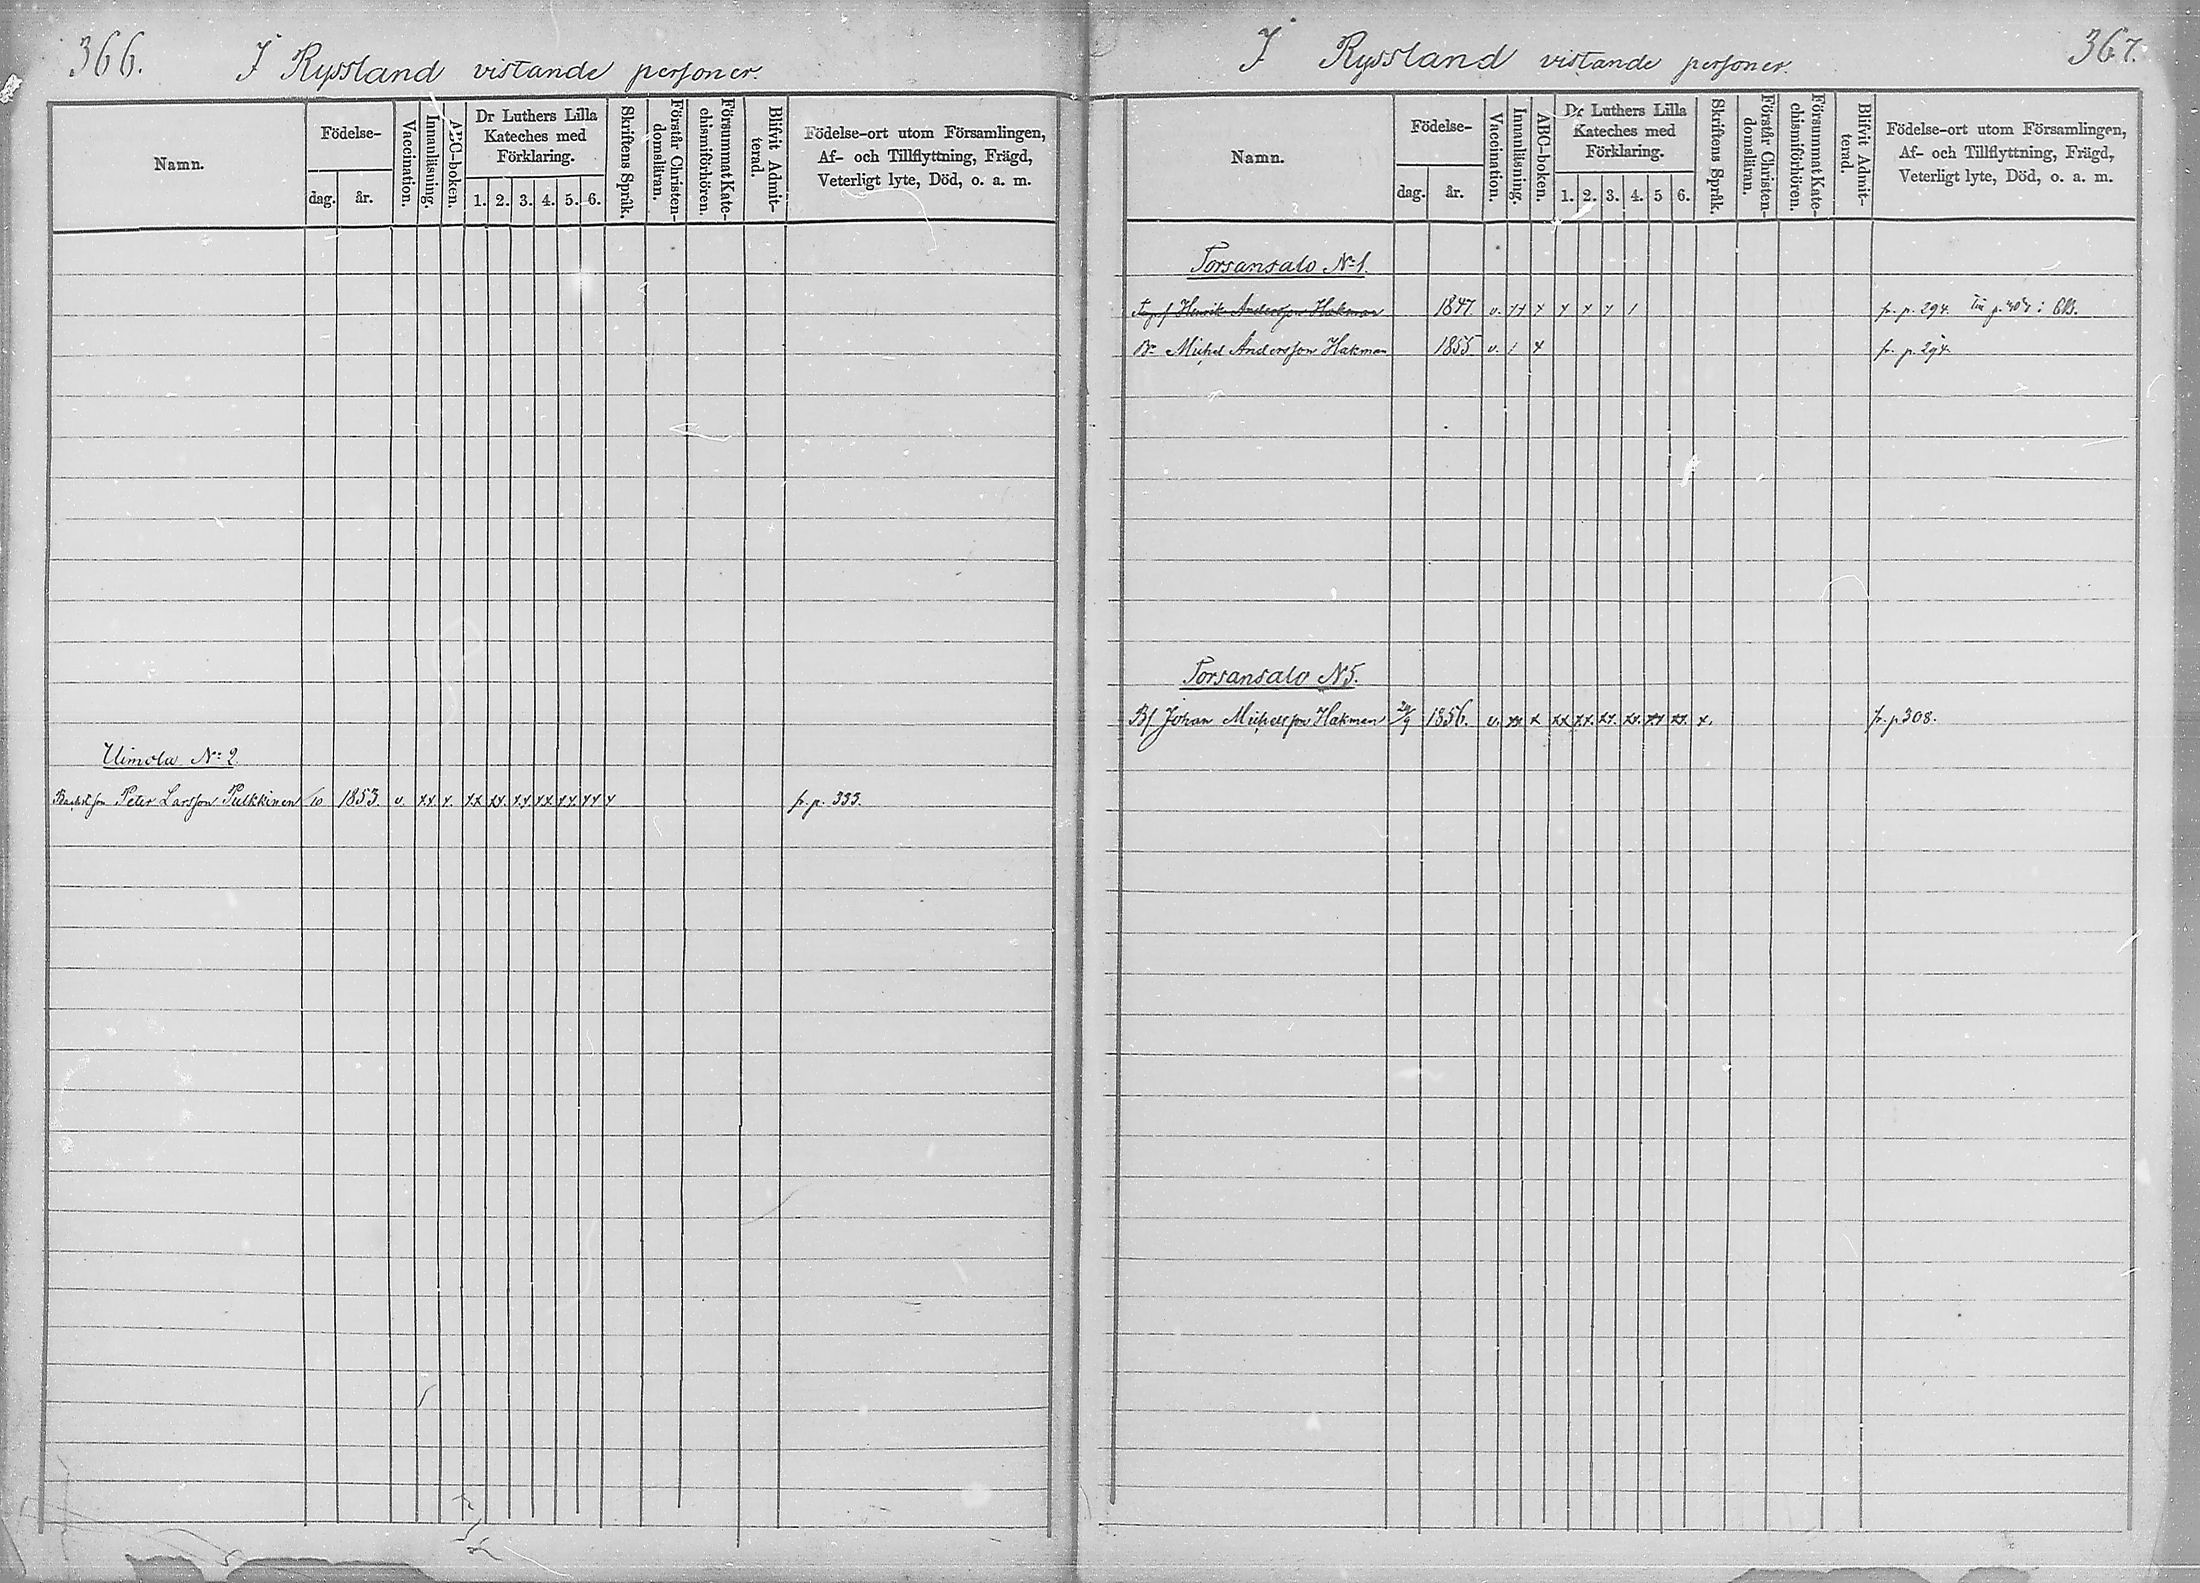 366.
I Ryssland vistande personer.
Namn.
Födelse-
dag. år.
Vaccination.
Innanläsning.
ABC-boken.
Dr Luthers Lilla
Kateches med
Förklaring.
1. 2. 3. 4. 5. 6.
Skriftens Språk.
Förstår Christen-
domsläran.
Försummat Kate-
chismiförhören.
Blifvit Admit-
terad.
Födelse-ort utom Församlingen,
Af- och Tillflyttning, Frägd,
Veterligt lyte, Död, o. a. m.
Uimola No: 2.
Peter Larsson Pulkkinen 10 1853. v. xx. x. xx xx. xx xx xx xx x fr. p. 333.
I Ryssland vistande personer.
367.
Namn.
Födelse-
dag. år.
Vaccination.
Innanläsning.
ABC-boken.
Dr Luthers Lilla
Kateches med
Förklaring.
1. 2. 3. 4. 5 6.
Skriftens Språk.
Förstår Christen-
domsläran.
Försummat Kate-
chismiförhören.
Blifvit Admit-
terad.
Födelse-ort utom Församlingen,
Af- och Tillflyttning, Frägd,
Veterligt lyte, Död, o. a. m.
Torsansalo No: 1.
Henrik Andersson Hakman 1847. v. xx x x x x / fr. p. 294.
Br Michel Andersson Hakman 1855 v. / x fr. p. 294.
Torsansalo N 5.
Bs Johan Michelsson Hakman 20/9 1856. v. xx x xx xx. xx. xx. xx xx. x. fr. p 308.